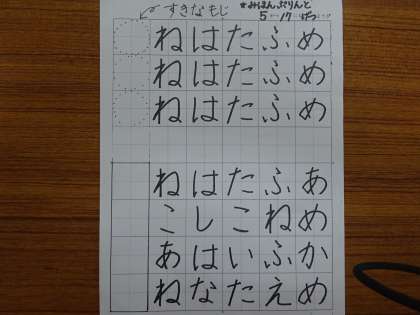 すきなもじ
★みほんぷりんと
5 17 げつ
ねはたふめ
ねはたふめ
ねはたふめ
ねはたふあ
こしこねめ
あはいふか
ねなたえめ